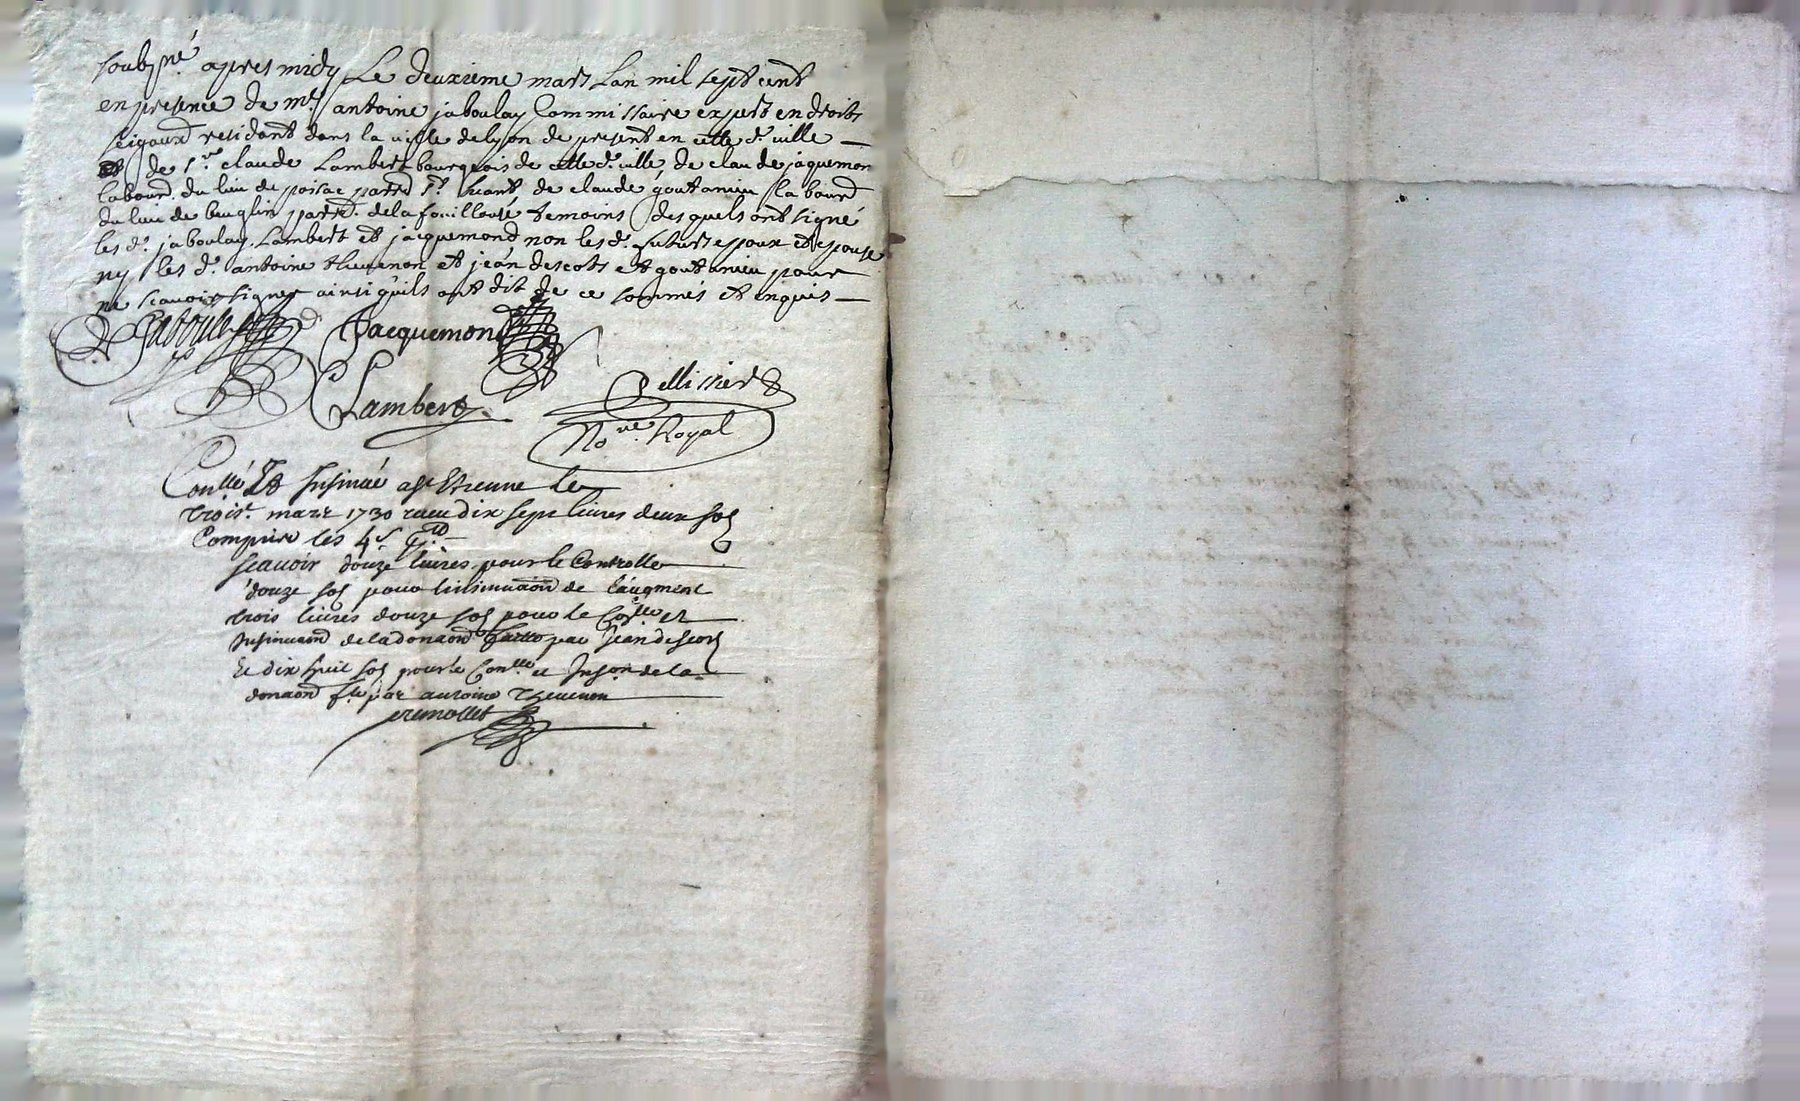 soubsné apres midy Le deuxieme mars Lan mil sept cent
en presence de mr antoine jaboulay Commissaire expert en droits
seigaurd residant dans la ville de lyon de present en cette d. ville
et de sr claude Lambert bourgeois de cette d. ville, de claude jaquemon
labourd du lieu de parrd st de claude goutarieu labourd
du lieu de parrd de la fouillouse temoins desquels ont signé
les d. jaboulay, Lambert et jacquemond non les d. futurs epoux et epouse
ny les d. antoine theuenon et jean descots et goutarieu pour
ne scauoir signer ainsi quils ont dit de ce sommés et enquis
Jaboulay Jacquemond
Lambert
Pellissier
Nore Royal
Conllé Et Insinué a st Etienne le
trois.e mars 1730 receu dix sept liures deux sols
Compris les 4s
scauoir douze liures pour le Controlle
douze sols pour linsinuaon de laugment
trois liures douze sols pour le Conlle et
Insinuaon de la donaon faitte par Jean descos
Et dix huit sols pour le Conlle et Inson de la
donaon fte par antoine Theuenon
premollet